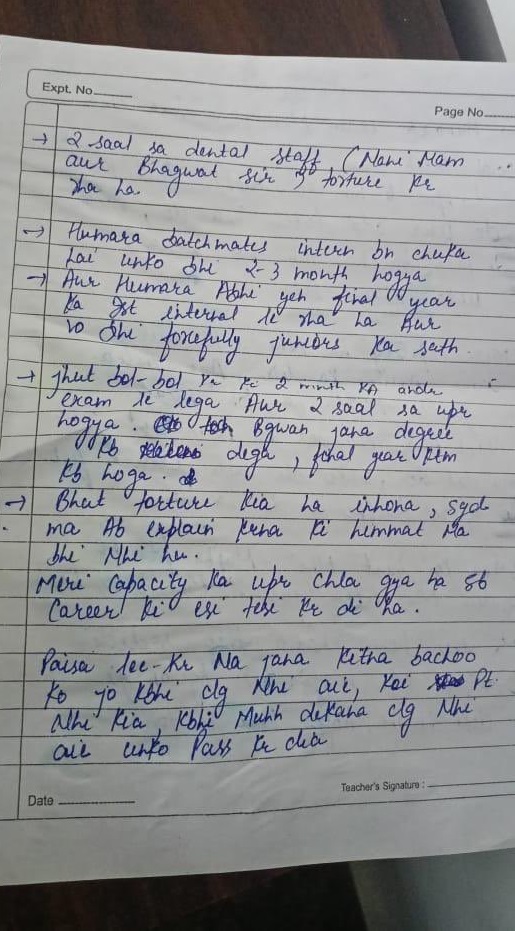 Expt. No.
Page No.
→ 2 saal sa dental staff (Mani Mam ..
aur Bhagwat sir) torture kr
rha ha.
→ Humara batchmates intern bn chuka
hai unko bhi 2-3 month hogya
→ Aur Humara Abhi yeh final year
ka Ist internal le rha ha Aur
vo bhi forcefully juniors ka sath.
→ jhut bol-bol kr ki 2 mnth KA andr
exam le lega Aur 2 saal sa upr
hogya. Bgwan jana degree
kb dega, final year ktm
kb hoga.
→ Bhut torture kia ha inhona, syd
ma Ab explain krna ki himmat Ma
bhi Nhi hu.
Meri capacity ka upr chla gya ha sb
Career ki esi tesi kr di ha.
Paisa lee-kr Na jana kitna bachoo
ko jo kbhi clg Nhi aie, koi Pt.
Nhi kia, kbhi Muhh dekana clg Nhi
aie unko Pass kr dia
Date
Teacher's Signature :